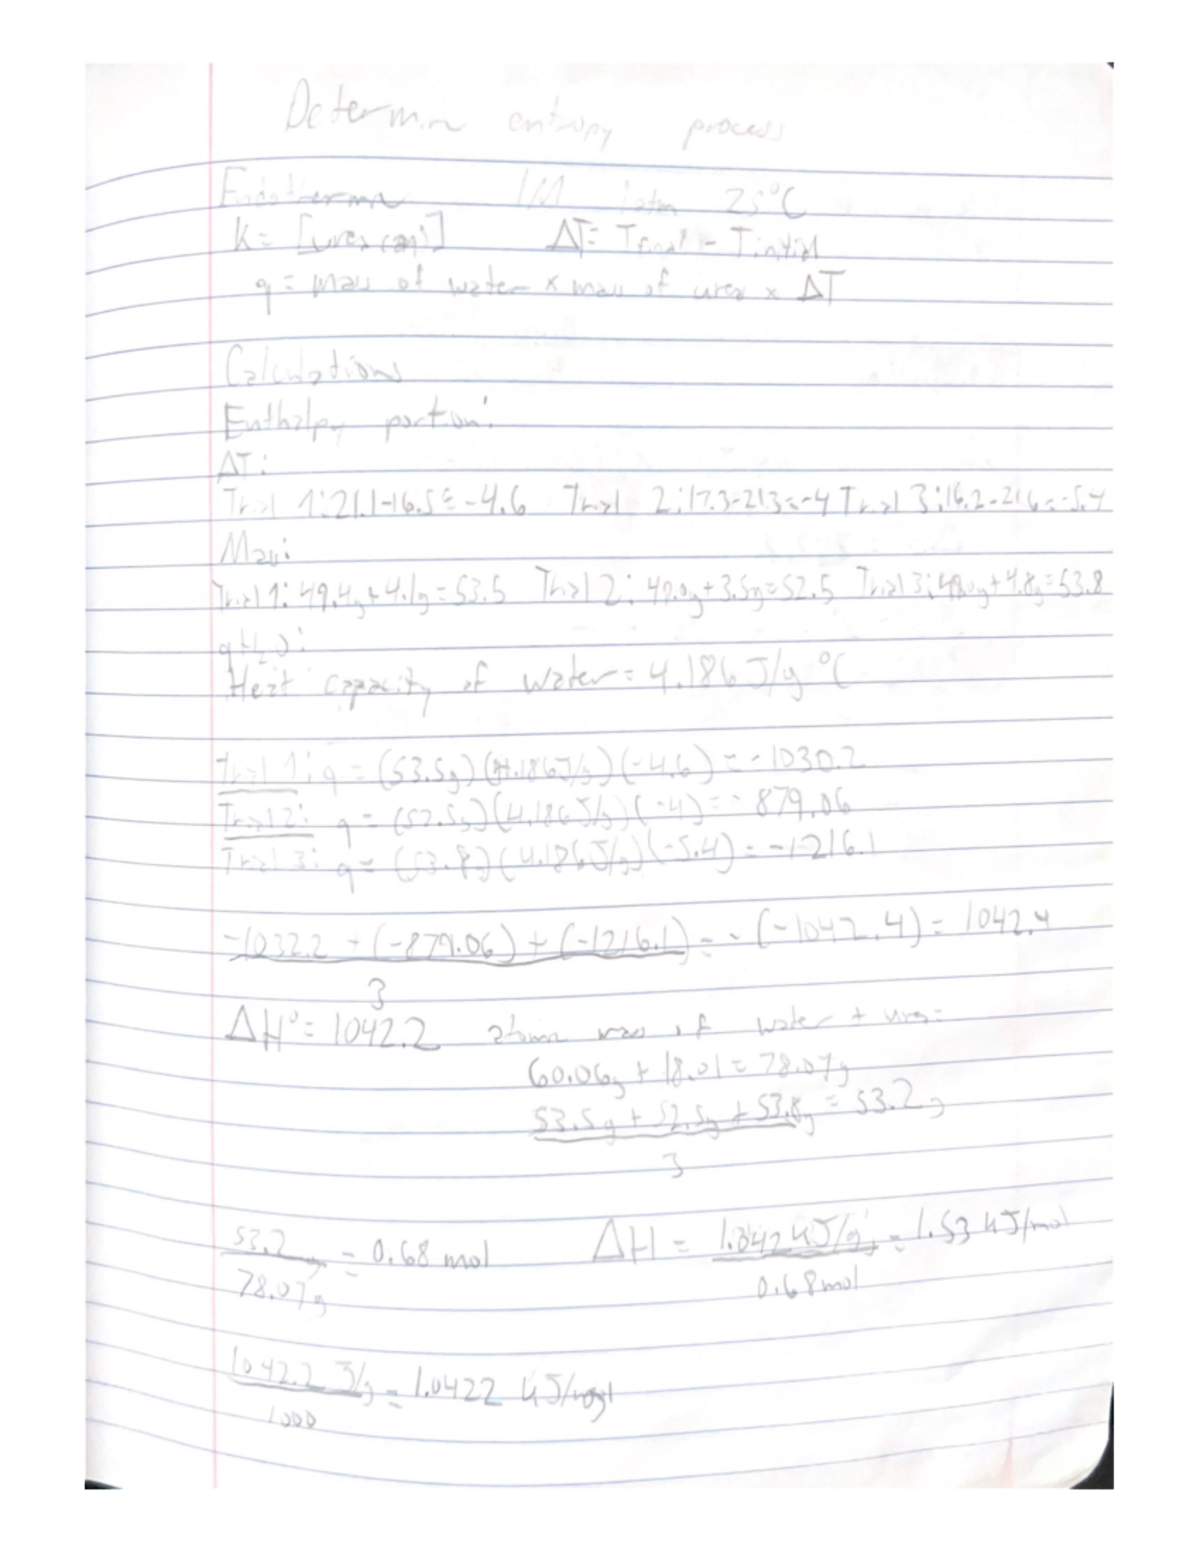 Determin entropy process
Endotherma 1M 1atm 25°C
K= [urea(aq)] ΔT= Tfinal - Tinitial
q = mass of water × mass of urea × ΔT
Calculations
Enthalpy portion:
ΔT:
Trial 1: 21.1-16.5= -4.6 Trial 2: 17.3-21.3=-4 Trial 3: 16.2-21.6=-5.4
Mass:
Trial 1: 49.4g+4.1g=53.5 Trial 2: 49.0g+3.5g=52.5 Trial 3: 49.0g+4.8g=53.8
qH₂O:
Heat capacity of water= 4.186 J/g °C
Trial 1: q = (53.5g)(4.186J/g)(-4.6) = -1030.2
Trial 2: q = (52.5g)(4.186J/g)(-4)= - 879.06
Trial 3: q = (53.8g)(4.186J/g)(-5.4) = -1216.1
-1032.2 + (-879.06) + (-1216.1) = -(-1042.4) = 1042.4
3
ΔH°= 1042.2 mass of water + urea=
60.06g + 18.01 = 78.07g
53.5g + 52.5g + 53.8g = 53.2g
3
53.2 = 0.68 mol ΔH = 1.042 kJ/g = 1.53 kJ/mol
78.07g 0.68mol
1042.2 J/g = 1.0422 kJ/
1000